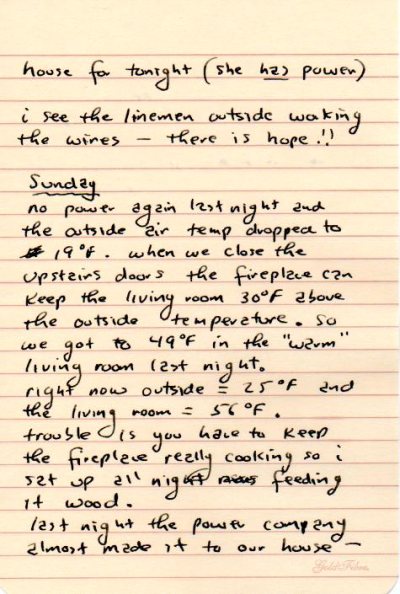 house for tonight (she has power)
i see the linemen outside working
the wires — there is hope!!
Sunday
no power again last night and
the outside air temp dropped to
19°F. when we close the
upstairs doors the fireplace can
keep the living room 30°F above
the outside temperature. So
we got to 49°F in the "warm"
living room last night.
right now outside = 25°F and
the living room = 56°F.
trouble is you have to keep
the fireplace really cooking so i
sat up all night feeding
it wood.
last night the power company
almost made it to our house —
Gold Fibre